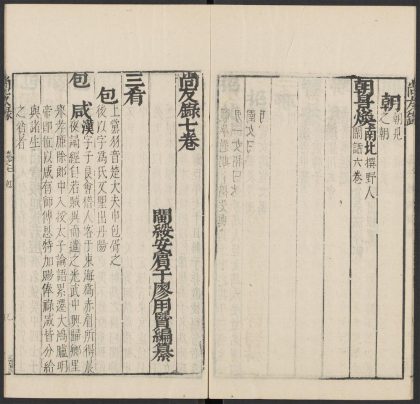 尚友錄
朝
朝見
之朝
南北
撰野人
閒話六卷
尚友錄七卷
閩綏安賓于廖用賢編纂
三肴
包
上黨羽音楚大夫申包胥之
後以字為氏又望出丹陽
包咸
漢
字子良會稽人客于東海為赤眉所得晨
夜誦經自若賊異而遣之光武中興歸鄉里
舉孝廉除郎中入授太子論語累遷大鴻臚明
帝即位以咸有師傅恩特加賜俸祿咸皆分給
與諸生
之貧者
尚友錄